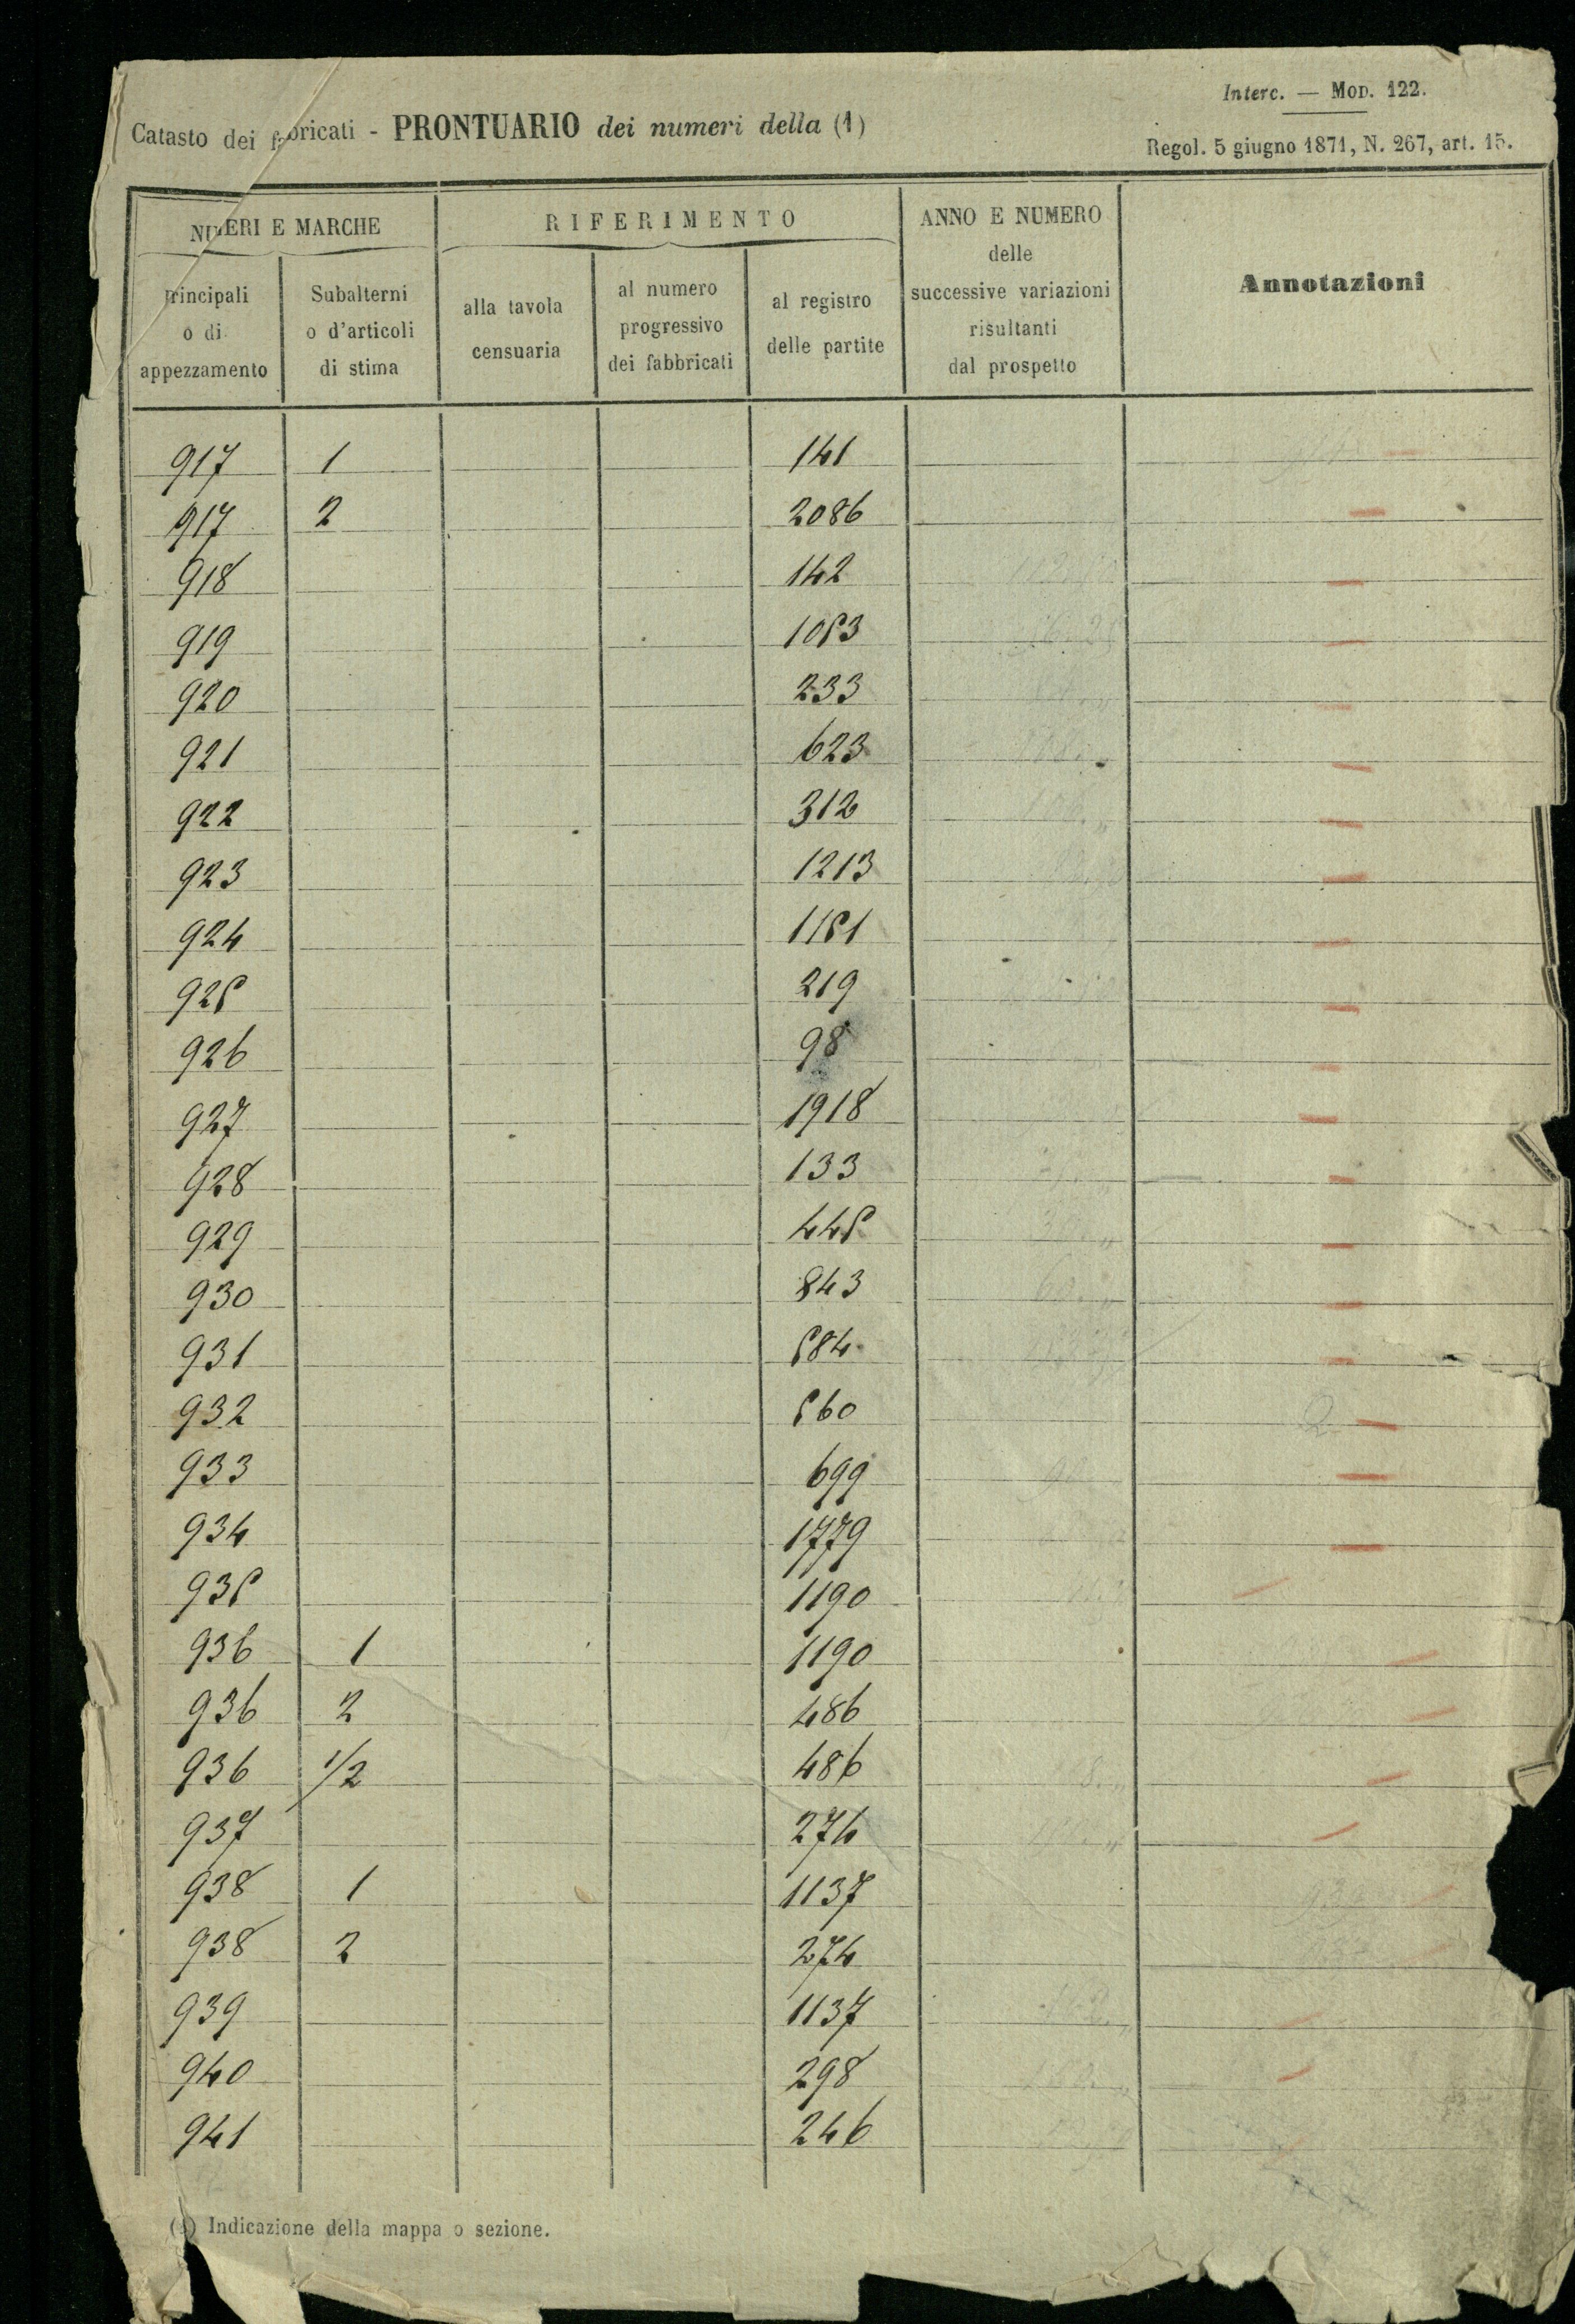 Interc. — MOD. 122.
Catasto dei fabbricati - PRONTUARIO dei numeri della (1)
Regol. 5 giugno 1871, N. 267, art. 15.
NUMERI E MARCHE
RIFERIMENTO
ANNO E NUMERO
delle
successive variazioni
risultanti
dal prospetto
Annotazioni
principali
o di
appezzamento
Subalterni
o d'articoli
di stima
alla tavola
censuaria
al numero
progressivo
dei fabbricati
al registro
delle partite
917 1 141
917 2 2086
918 142
919 1053
920 233
921 623
922 312
923 1213
924 1151
925 219
926 98
927 1918
928 133
929 445
930 843
931 584
932 560 2
933 699
934 1779
935 1190
936 1 1190
936 2 486
936 1/2 486
937 274
938 1 1137
938 2 274
939 1137
940 298
941 246
(1) Indicazione della mappa o sezione.